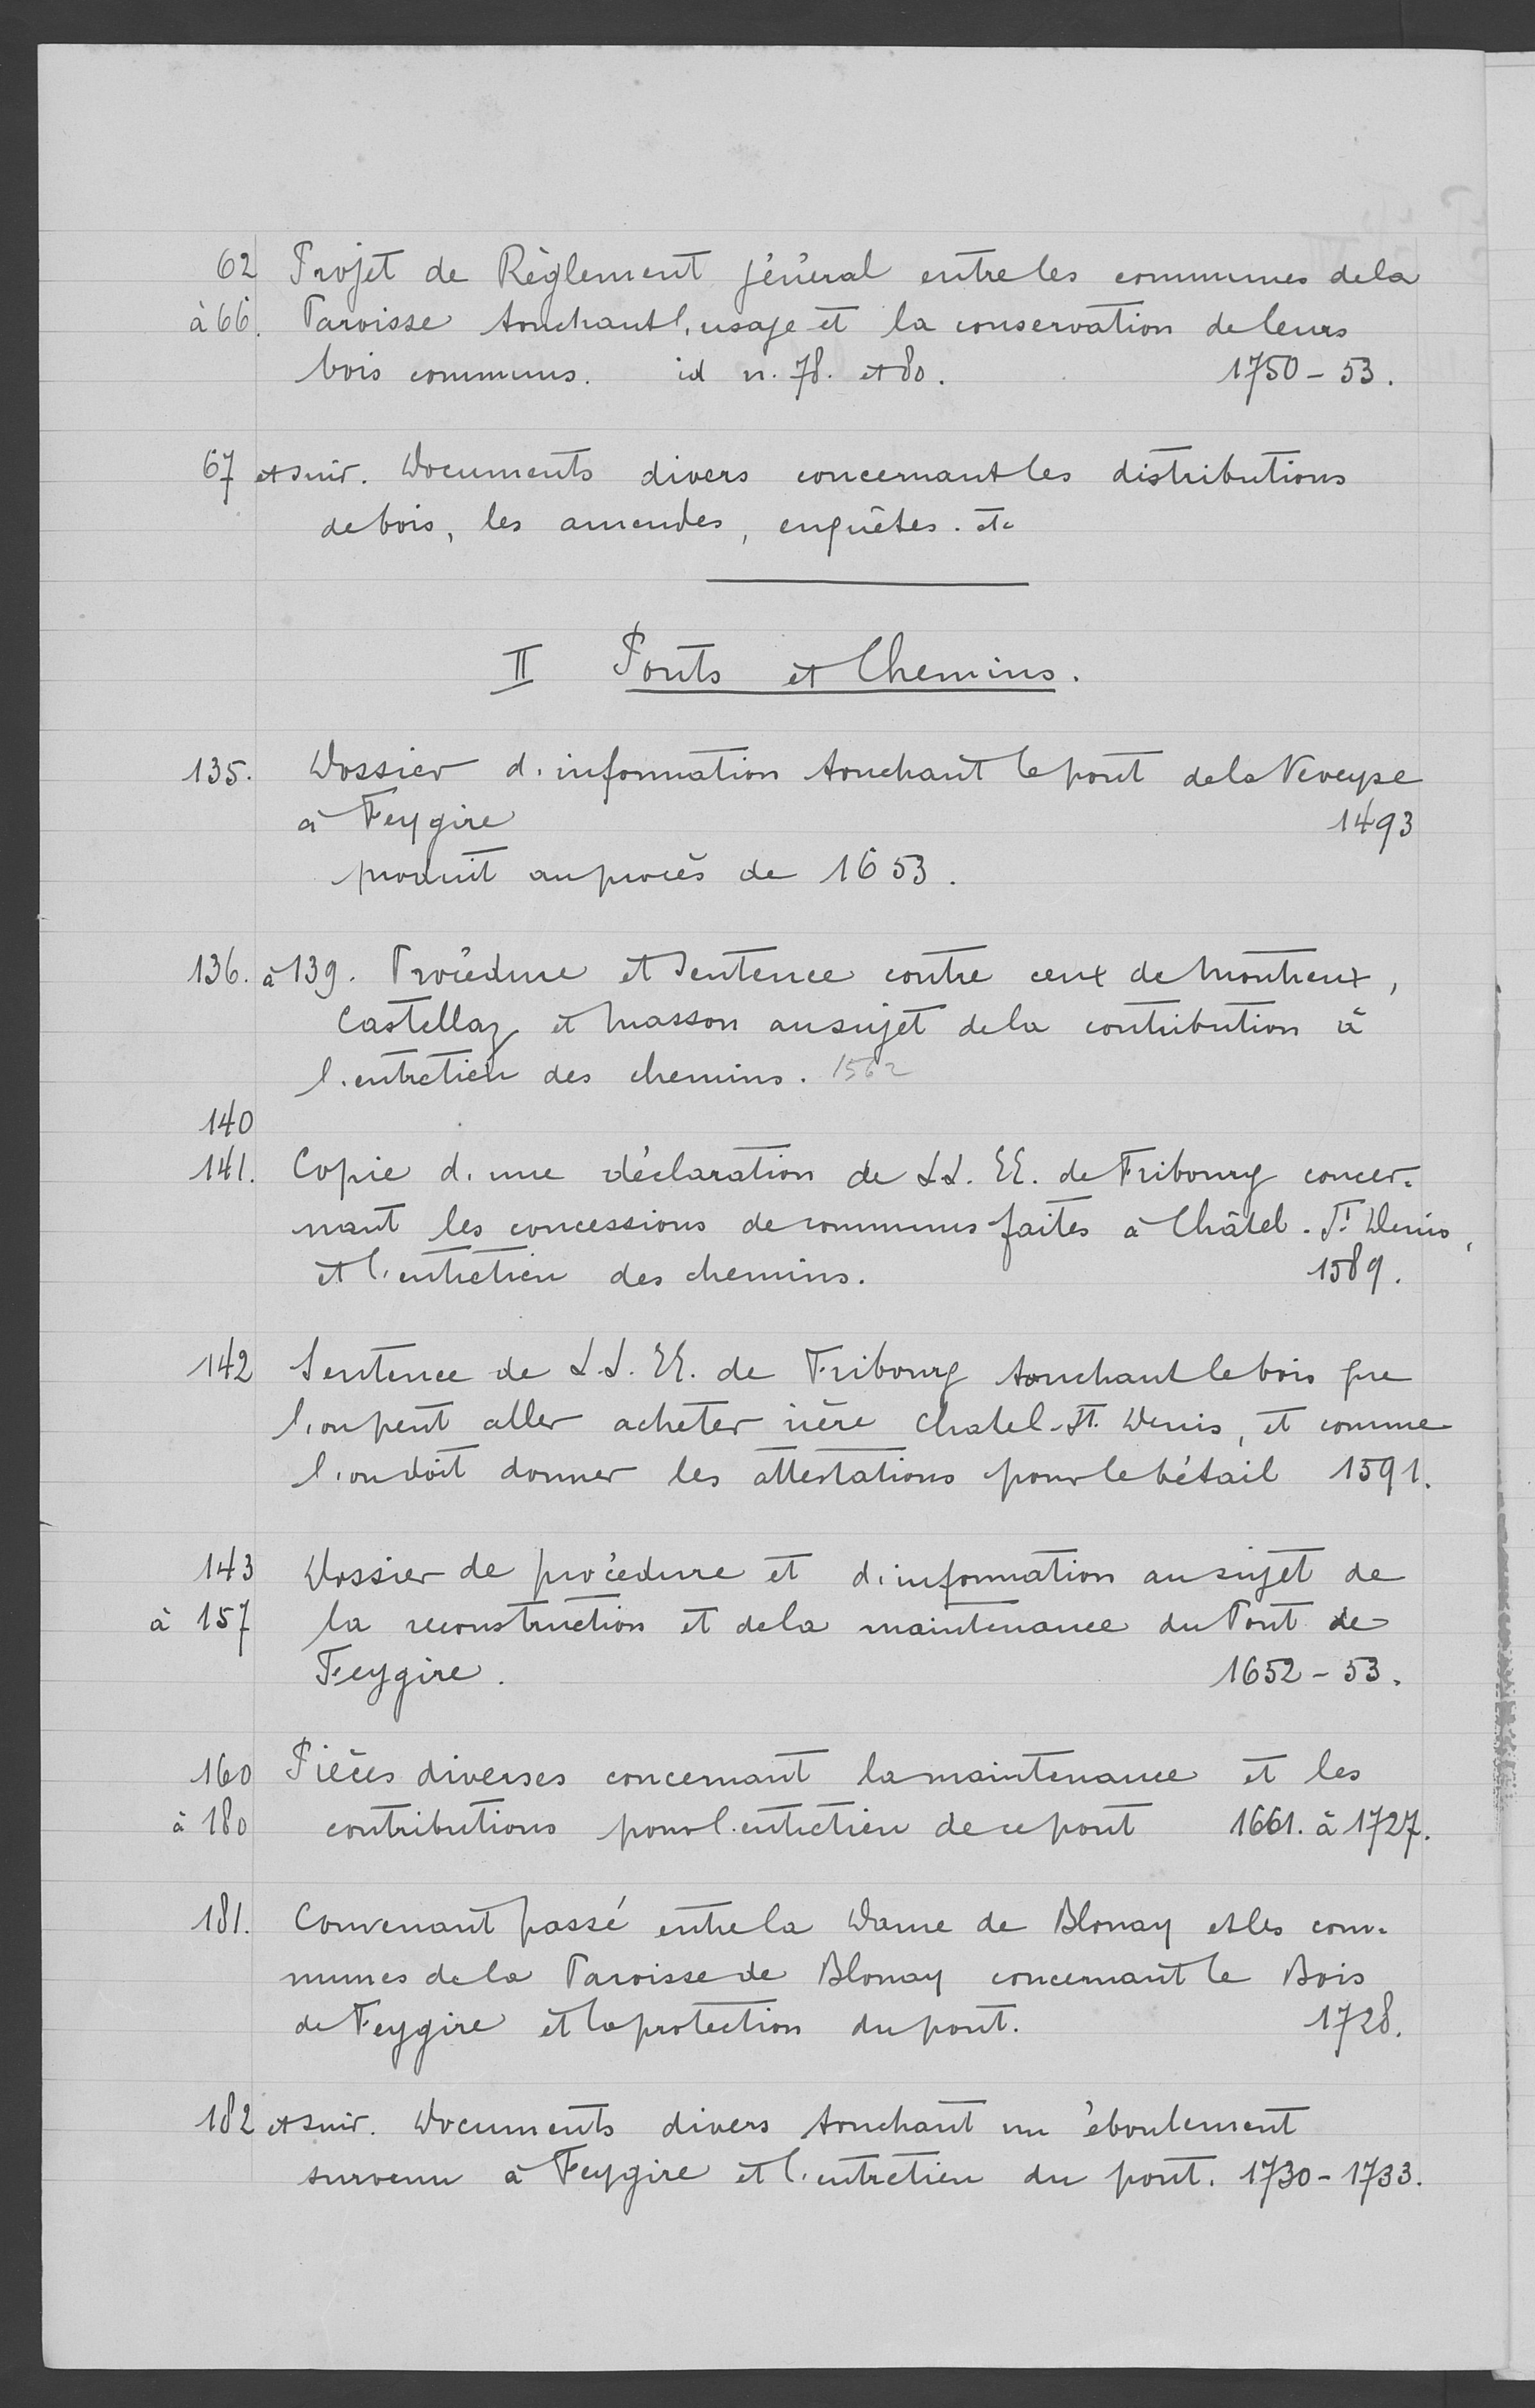 62 Projet de Règlement général entre les communes de la
à 66. Paroisse touchant l'usage et la conservation de leurs
bois communs. id n. 78. et 80. 1750 - 53.
67 et suiv. Documents divers concernant les distributions
de bois, les amendes, enquêtes. etc
II Ponts et Chemins.
135. Dossier d'information touchant le pont de la Veveyse
à Feygire 1493
produit au procès de 1653.
136. à 139. Procédure et Sentence contre ceux de Montreux,
Castellaz et Masson au sujet de la contribution à
l'entretien des chemins. 1562
140
141. Copie d'une déclaration de LL. EE. de Fribourg concer-
nant les concessions de communs faites à Châtel-St Denis,
et l'entretien des chemins. 1589.
142 Sentence de LL. EE. de Fribourg touchant le bois que
l'on peut aller acheter rière Chatel-St. Denis, et comme
l'on doit donner les attestations pour le bétail 1591.
143 Dossier de procédure et d'information au sujet de
à 157 la reconstruction et de la maintenance du Pont de
Feygire. 1652 - 53.
160 Pièces diverses concernant la maintenance et les
à 180 contributions pour l'entretien de ce pont 1661. à 1727.
181. Convenant passé entre la Dame de Blonay et les com-
munes de la Paroisse de Blonay concernant le Bois
de Feygire et la protection du pont. 1728.
182 et suiv. Documents divers touchant un éboulement
survenu à Feygire et l'entretien du pont. 1730 - 1733.